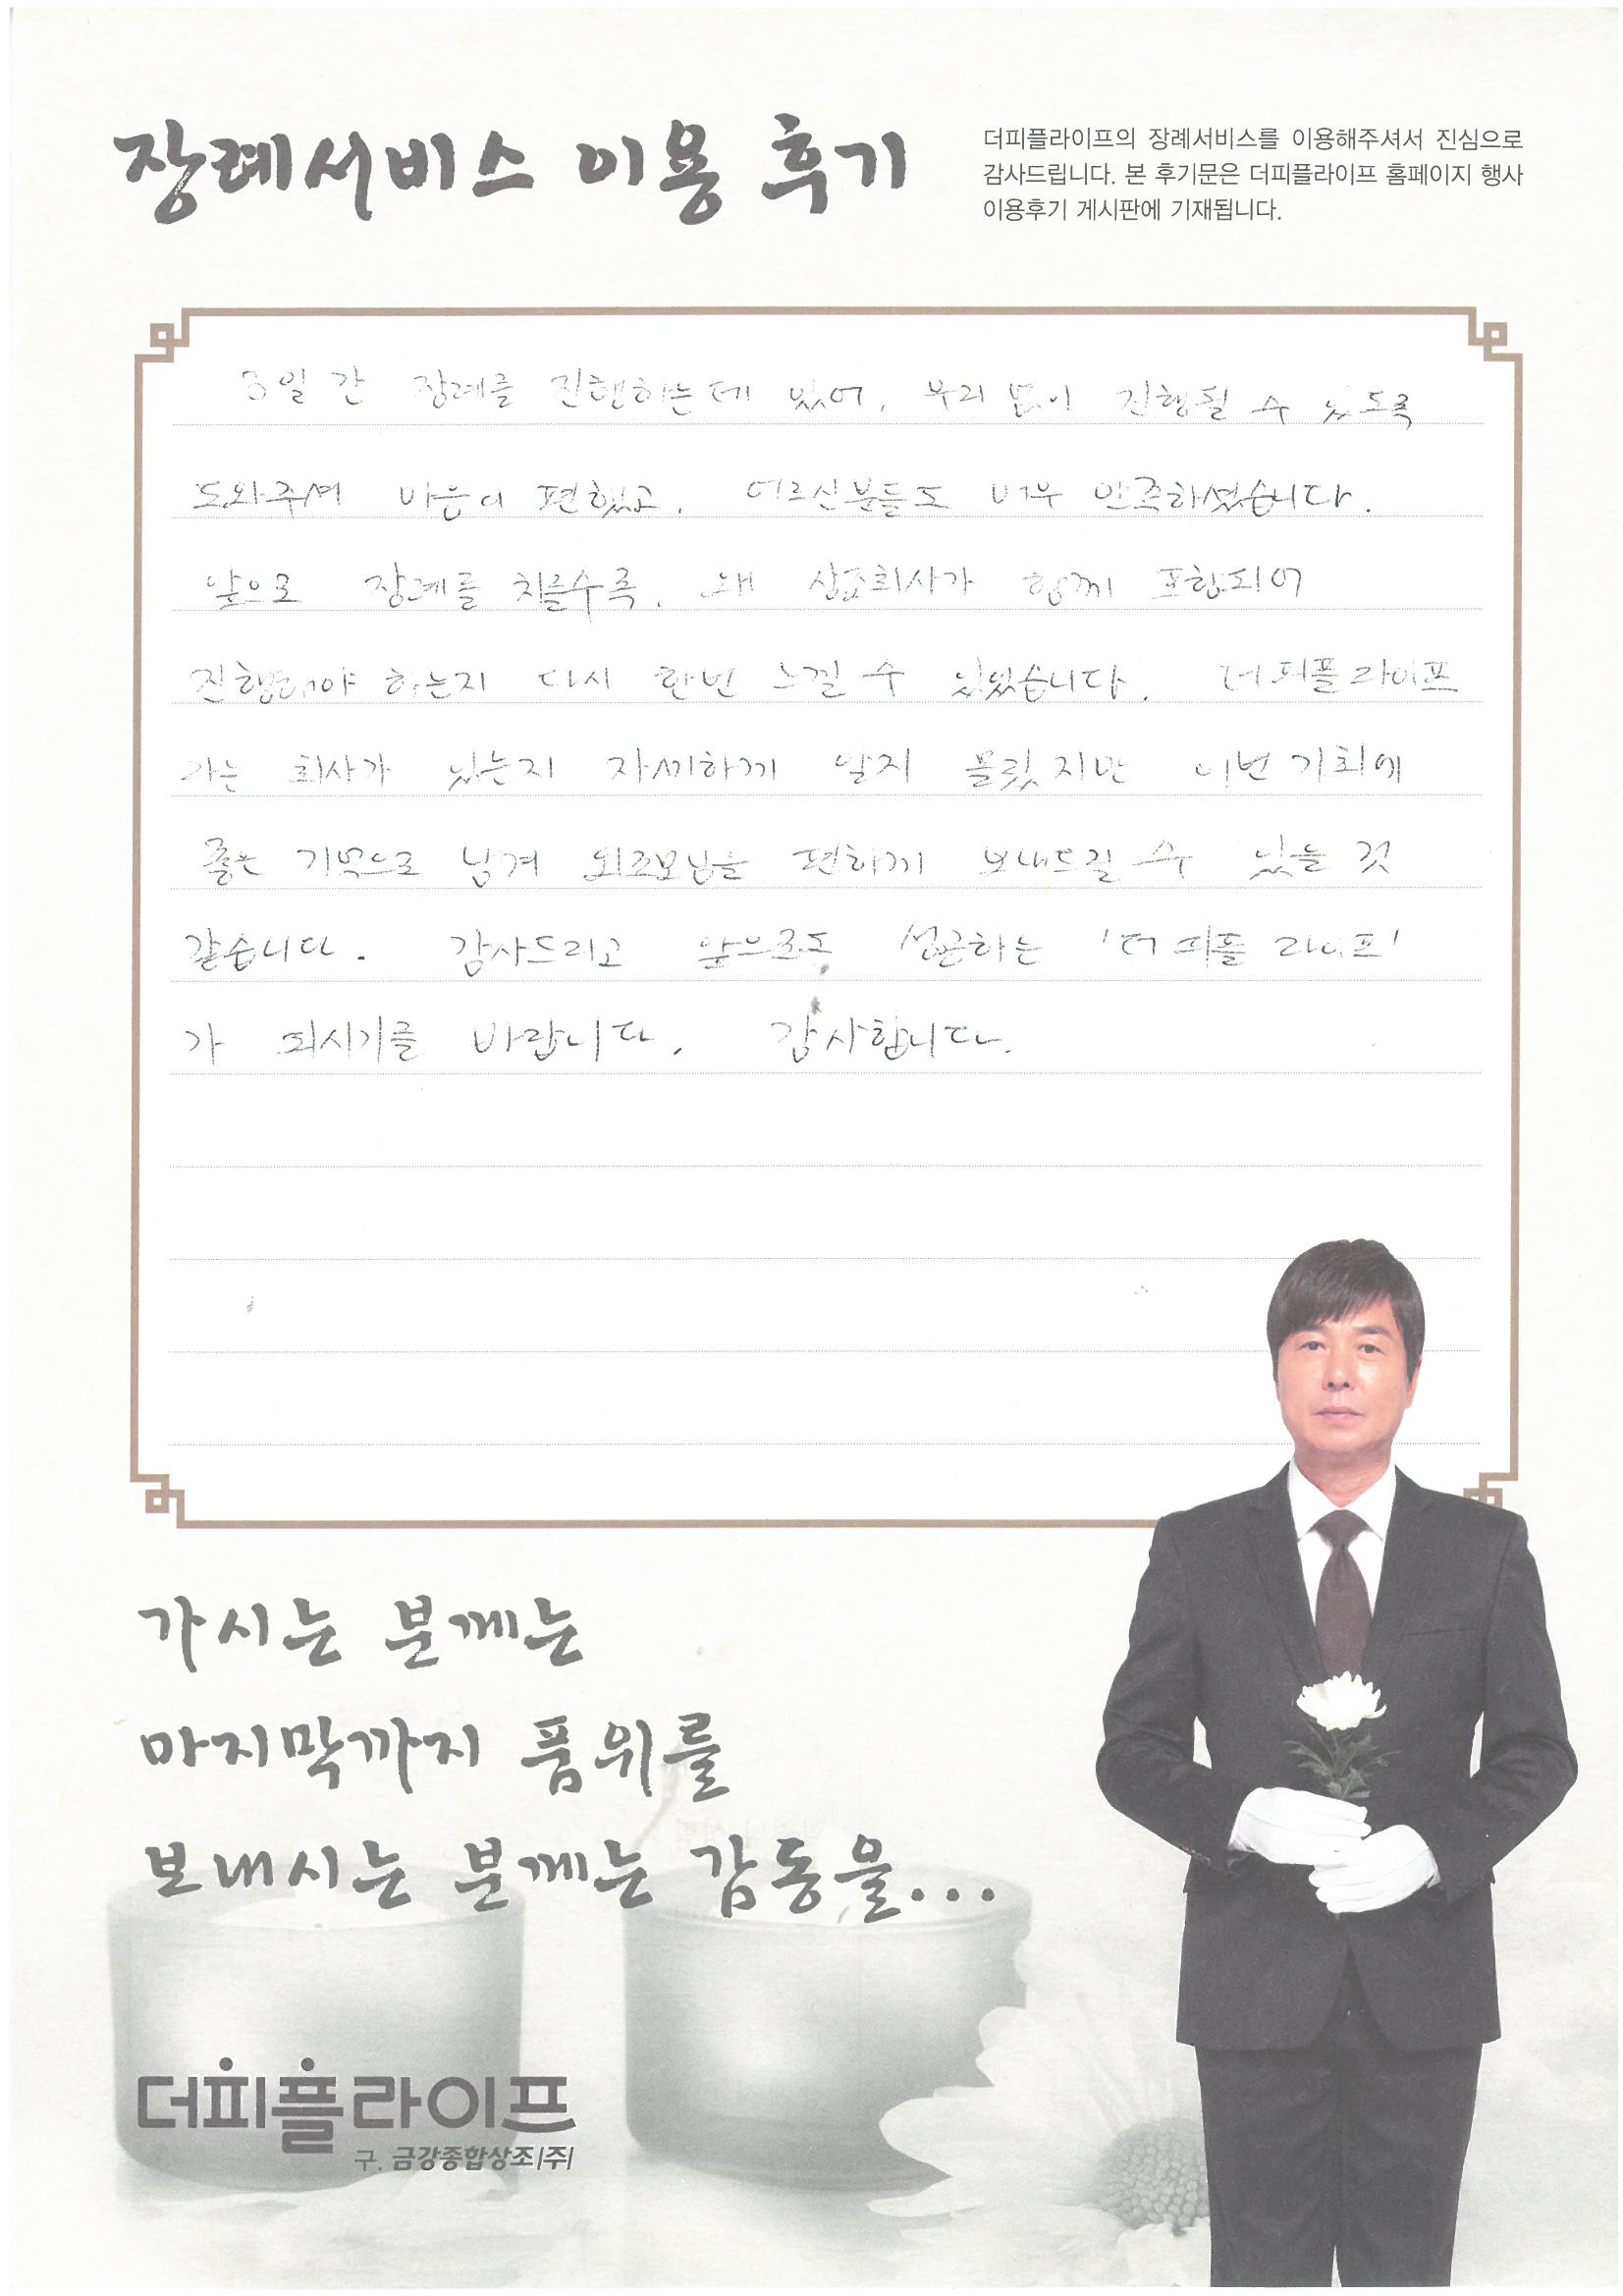 장례서비스 이용 후기
더피플라이프의 장례서비스를 이용해주셔서 진심으로
감사드립니다. 본 후기문은 더피플라이프 홈페이지 행사
이용후기 게시판에 기재됩니다.
3일 간 장례를 진행하는데 있어, 무리 없이 진행될 수 있도록
도와주셔 마음이 편했고, 어르신분들도 매우 만족하셨습니다.
앞으로 장례를 치를수록, 왜 상조회사가 함께 포함되어
진행되야 하는지 다시 한번 느낄 수 있었습니다. 더피플라이프
라는 회사가 있는지 자세하게 알지 몰랐지만 이번 기회에
좋은 기억으로 남겨 외조모님을 편하게 보내드릴 수 있을 것
같습니다. 감사드리고 앞으로도 성근하는 '더 피플 라이프'
가 되시기를 바랍니다. 감사합니다.
가시는 분께는
마지막까지 품위를
보내시는 분께는 감동을...
더피플라이프
구. 금강종합상조(주)